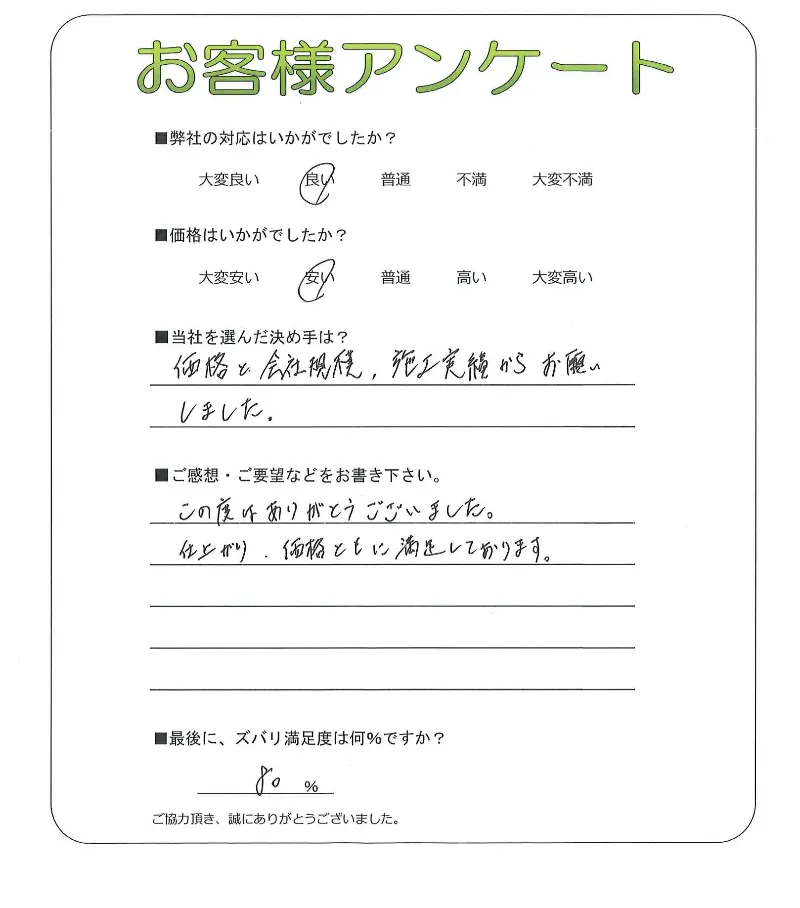 お客様アンケート
■弊社の対応はいかがでしたか？
大変良い 良い 普通 不満 大変不満
■価格はいかがでしたか？
大変安い 安い 普通 高い 大変高い
■当社を選んだ決め手は？
価格と会社規模，施工実績からお願い
しました。
■ご感想・ご要望などをお書き下さい。
この度はありがとうございました。
仕上がり、価格ともに満足しております。
■最後に、ズバリ満足度は何％ですか？
80 ％
ご協力頂き、誠にありがとうございました。